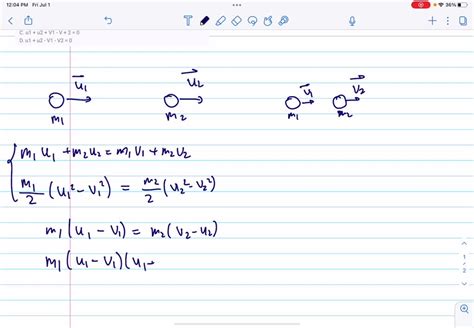 12:04 PM Fri Jul 1
36%
C. u1 + u2 + V1 - V + 2 = 0
D. u1 + u2 - V1 - V2 = 0
u₁ u₂ v₁ v₂
m₁ m₂ m₁ m₂
m₁ u₁ + m₂ u₂ = m₁ v₁ + m₂ v₂
m₁/2 (u₁² - v₁²) = m₂/2 (u₂² - v₂²)
m₁ (u₁ - v₁) = m₂ (v₂ - u₂)
m₁ (u₁ - v₁)(u₁ -
1
2